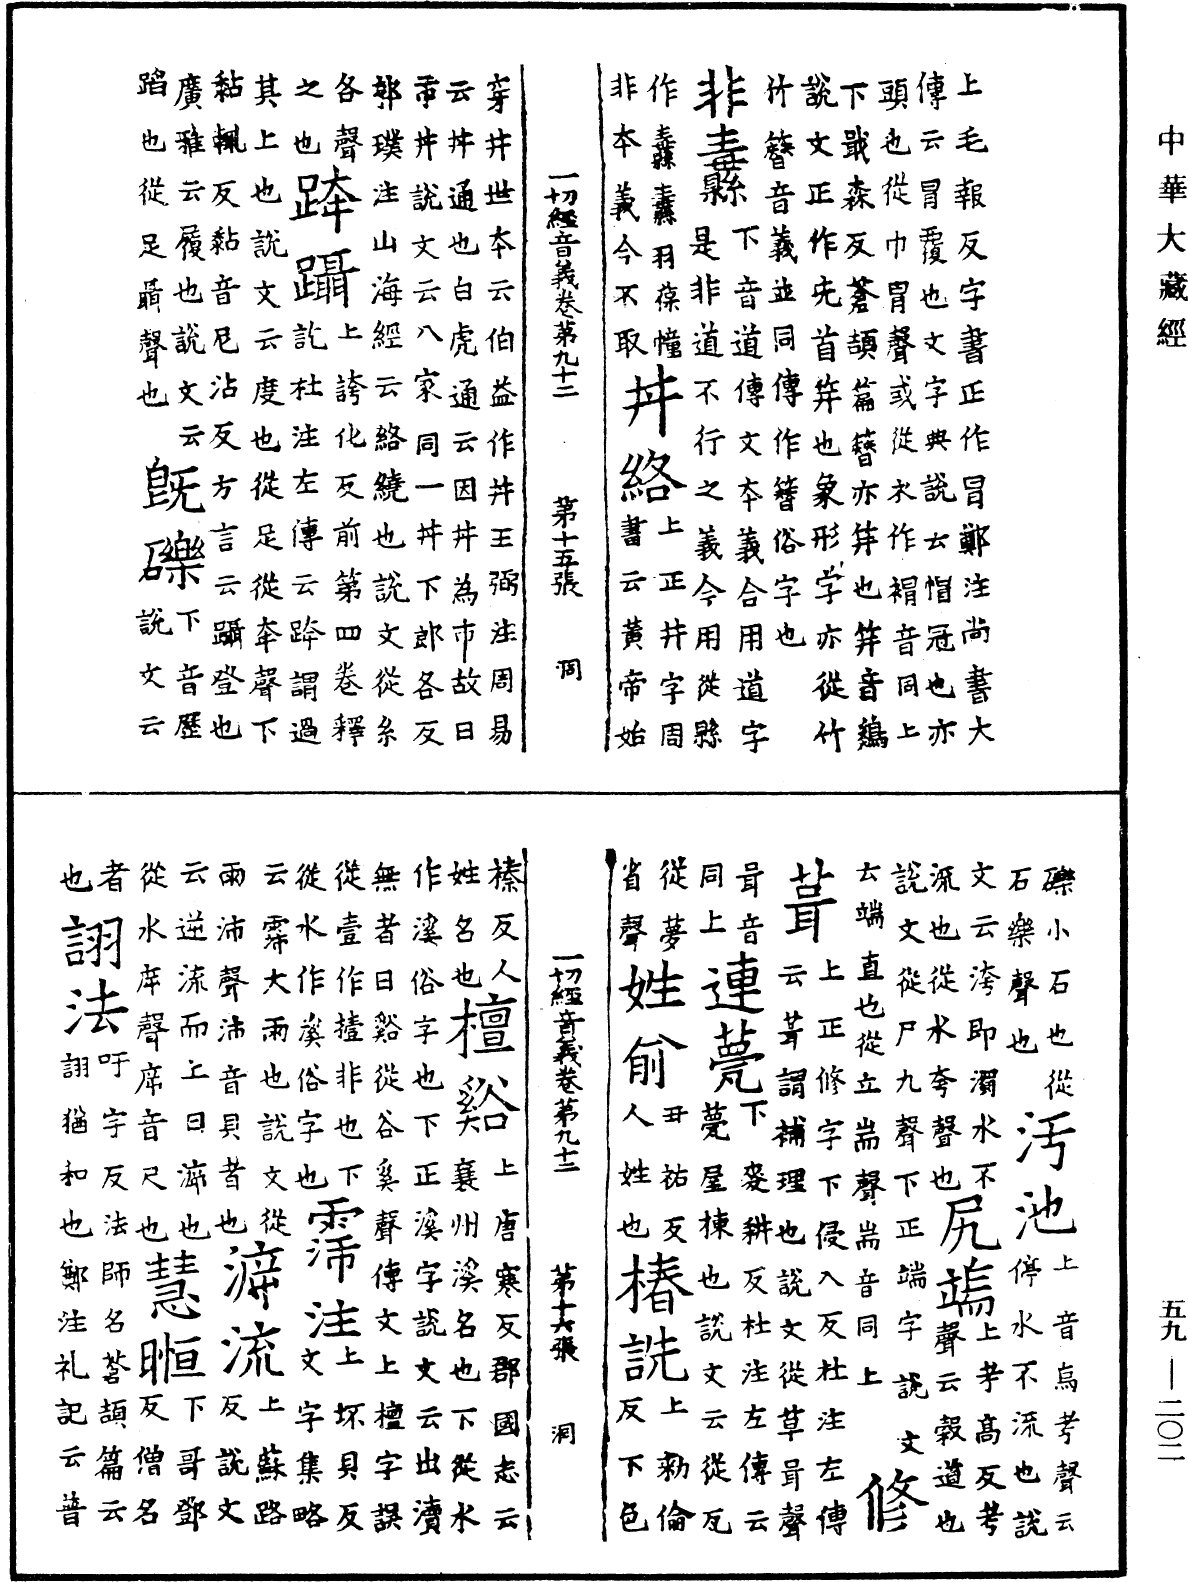 中華大藏經
上毛報反字書正作冒鄭注尚書大
傳云冒覆也文字典說云帽冠也亦
頭也從巾冒聲或從衣作褶音同上
下戢森反蒼頡篇簪亦筓也筓音鷄
說文正作兂首筓也象形字亦從竹
竹簪音義並同傳作簪俗字也
非纛 下音道傳文本義合用道字
是非道不行之義今用從縣
作纛纛羽葆幢
非本義今不取
丼絡 上正井字周
書云黃帝始
一切經音義卷第九十二 第十五張 洞
穿丼世本云伯益作丼王弼注周易
云丼通也白虎通云因丼為市故曰
市丼說文云八家同一丼下郎各反
郭璞注山海經云絡繞也說文從糸
各聲
跨躡 上誇化反前第四卷釋
之也訖杜注左傳云跨謂過
其上也說文云度也從足從夸聲下
黏輒反黏音尼沾反方言云躡登也
廣雅云履也說文云
蹈也從足聶聲也
既礫 下音歷
說文云
礫小石也從
石樂聲也
洿池 上音烏考聲云
停水不流也說
文云洿即濁水不
流也從水夸聲也
尻端 上考高反考
聲云穀道也
說文從尸九聲下正端字說文
云端直也從立耑聲耑音同上
修葺 上正修字下侵入反杜注左傳
云葺謂補理也說文從草咠聲
咠音
同上
連甍 下麥耕反杜注左傳云
甍屋棟也說文云從瓦
從夢
省聲
姓俞 丑祐反
人姓也
椿詵 上勑倫
反下色
一切經音義卷第九十二 第十六張 洞
榛反人
姓名也
檀谿 上唐寒反郡國志云
襄州溪名也下從水
作溪俗字也下正溪字說文云出瀆
無者曰谿從谷奚聲傳文上檀字誤
從壹作擅非也下
從水作溪俗字也
霈注 上坏貝反
文字集略
云霈大雨也說文從
雨沛聲沛音貝者也
泝流 上蘇路
反說文
云逆流而上曰泝也
從水庠聲庠音尺也
慧暅 下哥鄧
反僧名
者
也
詡法 吁宇反法師名蒼頡篇云
詡猶和也鄭注礼記云普
五九—二〇二